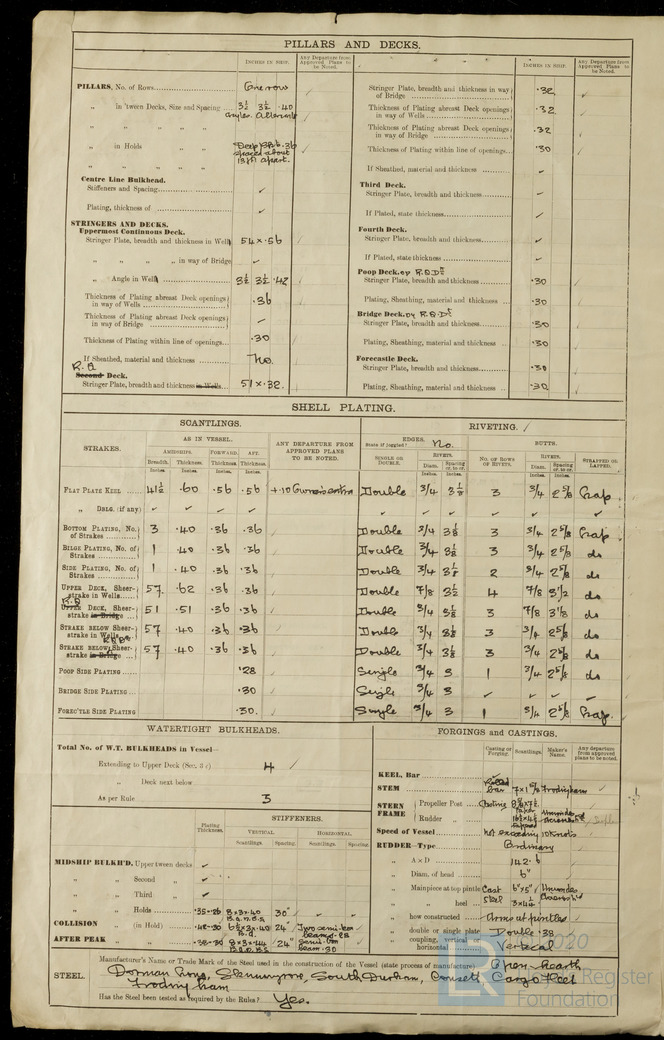 PILLARS AND DECKS.
INCHES IN SHIP.
Any Departure from Approved Plans to be Noted.
PILLARS, No. of Rows
One row
„ in 'tween Decks, Size and Spacing
3½ 3½ .40
angles. Alternate
„ in Holds
spaced about
13 ft apart.
Centre Line Bulkhead.
Stiffeners and Spacing
Plating, thickness of
STRINGERS AND DECKS.
Uppermost Continuous Deck.
Stringer Plate, breadth and thickness in Wells
54 × .56
„ „ „ in way of Bridge
„ Angle in Wells
3½ 3½ .42
Thickness of Plating abreast Deck openings in way of Wells
.36
Thickness of Plating abreast Deck openings in way of Bridge
Thickness of Plating within line of openings
.30
If Sheathed, material and thickness
No.
R.Q.
Second Deck.
Stringer Plate, breadth and thickness in Wells
51 × .32.
INCHES IN SHIP.
Any Departure from Approved Plans to be Noted.
Stringer Plate, breadth and thickness in way of Bridge
.32
Thickness of Plating abreast Deck openings in way of Wells
.32
Thickness of Plating abreast Deck openings in way of Bridge
.32
Thickness of Plating within line of openings
.30
If Sheathed, material and thickness
Third Deck.
Stringer Plate, breadth and thickness
If Plated, state thickness
Fourth Deck.
Stringer Plate, breadth and thickness
If Plated, state thickness
Poop Deck. or R.Q.Dk
Stringer Plate, breadth and thickness
.30
Plating, Sheathing, material and thickness
.30
Bridge Deck. or R.Q.Dk
Stringer Plate, breadth and thickness
.30
Plating, Sheathing, material and thickness
.30
Forecastle Deck.
Stringer Plate, breadth and thickness
.30
Plating, Sheathing, material and thickness
.30
SHELL PLATING.
SCANTLINGS.
RIVETING.
STRAKES.
AS IN VESSEL.
AMIDSHIPS. FORWARD. AFT.
Breadth. Thickness. Thickness. Thickness.
Inches. Inches. Inches. Inches.
ANY DEPARTURE FROM APPROVED PLANS TO BE NOTED.
EDGES.
State if joggled? No.
SINGLE OR DOUBLE.
RIVETS.
Diam. Spacing cr. to cr.
Inches. Inches.
NO. OF ROWS OF RIVETS.
BUTTS.
RIVETS.
Diam. Spacing cr. to cr.
Inches. Inches.
STRAPPED OR LAPPED.
FLAT PLATE KEEL 41½ .60 .56 .56 Double 3/4 3⅛ 3 3/4 2⅝ Lap
„ DBLG. (if any)
BOTTOM PLATING, No. of Strakes 3 .40 .36 .36 Double 3/4 3⅛ 3 3/4 2⅝ Lap
BILGE PLATING, No. of Strakes 1 .40 .36 .36 Double 3/4 3⅛ 3 3/4 2⅝ do
SIDE PLATING, No. of Strakes 1 .40 .36 .36 Double 3/4 3⅛ 2 3/4 2⅝ do
UPPER DECK, Sheerstrake in Wells 57. .62 .36 .36 Double 7/8 3½ 4 7/8 3½ do
R.Q.
UPPER DECK, Sheerstrake in Bridge 51 .51 .36 .36 Double 3/4 3⅛ 3 7/8 3⅛ do
STRAKE BELOW Sheerstrake in Wells 57 .40 .36 .36 Double 3/4 3⅛ 3 3/4 2⅝ do
R.Q.D.
STRAKE BELOW Sheerstrake in Bridge 57 .40 .36 .36 Double 3/4 3⅛ 3 3/4 2⅝ do
POOP SIDE PLATING .28 Single 3/4 3 1 3/4 2⅝ do
BRIDGE SIDE PLATING .30 Single 3/4 3
FOREC'TLE SIDE PLATING .30. Single 3/4 3 1 3/4 2⅝ Lap
WATERTIGHT BULKHEADS.
Total No. of W.T. BULKHEADS in Vessel—
Extending to Upper Deck (Sec. 3 c)
4
„ Deck next below
As per Rule
3
Plating Thickness.
STIFFENERS.
VERTICAL. HORIZONTAL.
Scantlings. Spacing. Scantlings. Spacing.
MIDSHIP BULKH'D. Upper tween decks
„ Second „
„ Third „
„ Holds .35-.26 8×3×.40 30"
COLLISION „ (in Hold) 24"
AFTER PEAK „ 8×3×.44 24"
FORGINGS and CASTINGS.
Casting or Forging. Scantlings. Maker's Name. Any departure from approved plans to be noted.
KEEL, Bar
STEM Rolled bar Frodingham
STERN FRAME Propeller Post Casting
Rudder „
Speed of Vessel not exceeding 10 Knots
RUDDER—Type Ordinary
„ A × D 142.6
„ Diam. of head 6"
„ Mainpiece at top pintle Cast steel 6"×5"
„ „ heel
„ how constructed Arms at pintles
„ double or single plate Double .38
„ coupling, vertical horizontal Vertical
STEEL.
Manufacturer's Name or Trade Mark of the Steel used in the construction of the Vessel (state process of manufacture) Open-hearth
Dorman Long, Skinningrove, South Durham, Consett Cargo Fleet
Frodingham
Has the Steel been tested as required by the Rules? Yes.
2020
LR
Register
Foundation